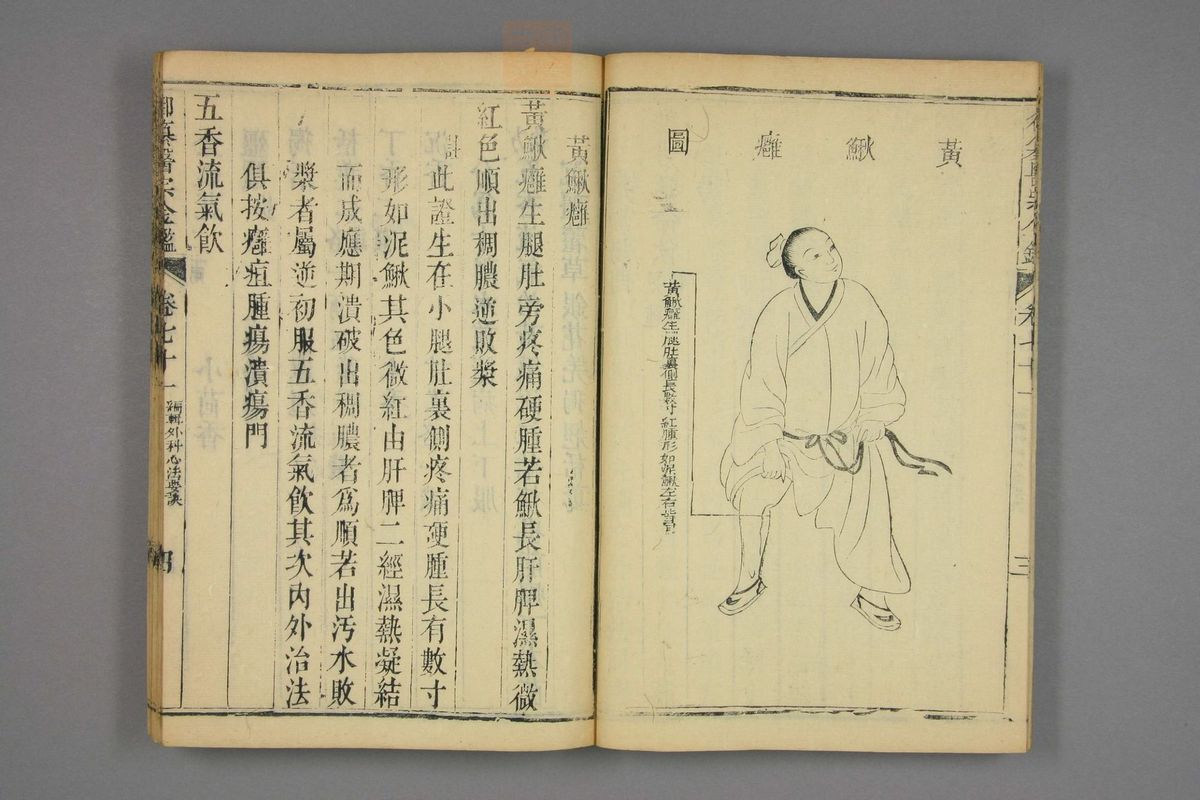 卷七十一
三
黃鰍癰圖
黃鰍癰生腿肚裏側長數寸紅腫形如泥鰍左右皆
黃鰍癰
黃鰍癰生腿肚旁疼痛硬腫若鰍長肝脾濕熱微
紅色順出稠膿逆敗漿
註此證生在小腿肚裏側疼痛硬腫長有數寸
形如泥鰍其色微紅由肝脾二經濕熱凝結
而成應期潰破出稠膿者爲順若出污水敗
漿者屬逆初服五香流氣飲其次內外治法
俱按癰疽腫瘍潰瘍門
五香流氣飲
御纂醫宗金鑑
卷七十一
編輯外科心法要訣
四